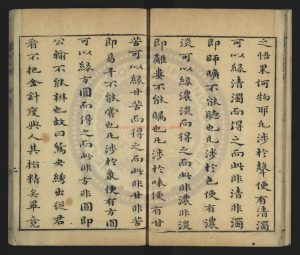 之悟果何物耶凡涉於聲便有清濁
可以緣清濁而得之而此非清非濁
即師曠不能聽也凡涉於色便有濃
淡可以緣濃淡而得之而此非濃非淡
即離婁不能矚也凡涉於味便有甘
苦可以緣甘苦而得之而此非甘非苦
即易牙不能嘗也凡涉於象便有方圓
可以緣方圓而得之而此非方非圓即
公輸不能辨也故曰鴛鴦繡出從君
看不把金針度與人其指精矣畢竟
二